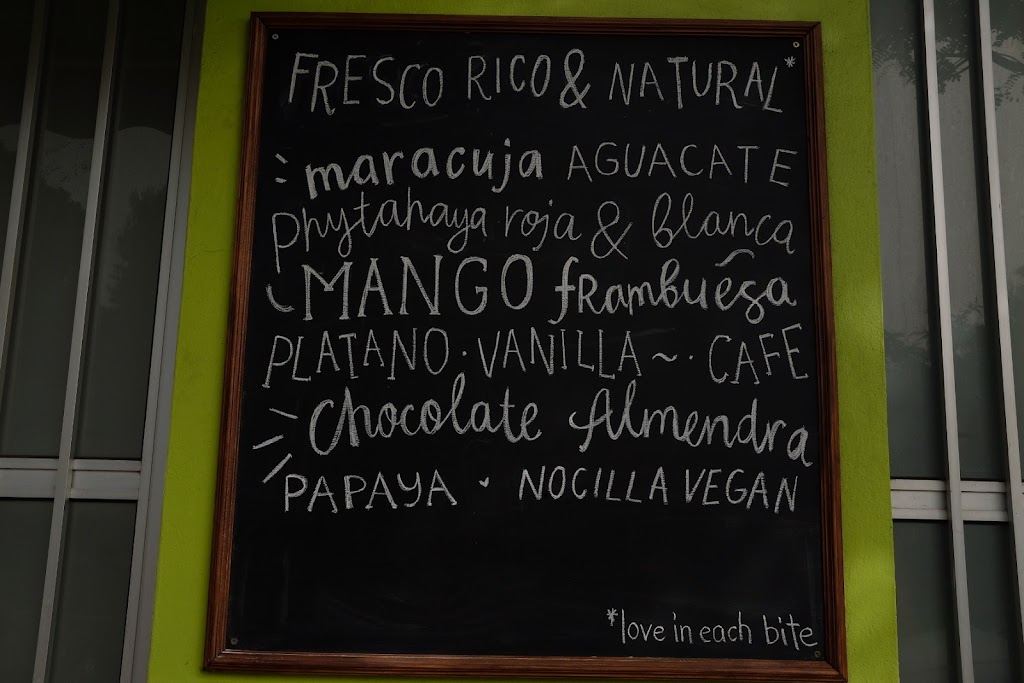 FRESCO RICO & NATURAL*
maracuja AGUACATE
phytahaya roja & blanca
MANGO frambuesa
PLATANO · VANILLA ~ · CAFE
Chocolate Almendra
PAPAYA · NOCILLA VEGAN
*love in each bite